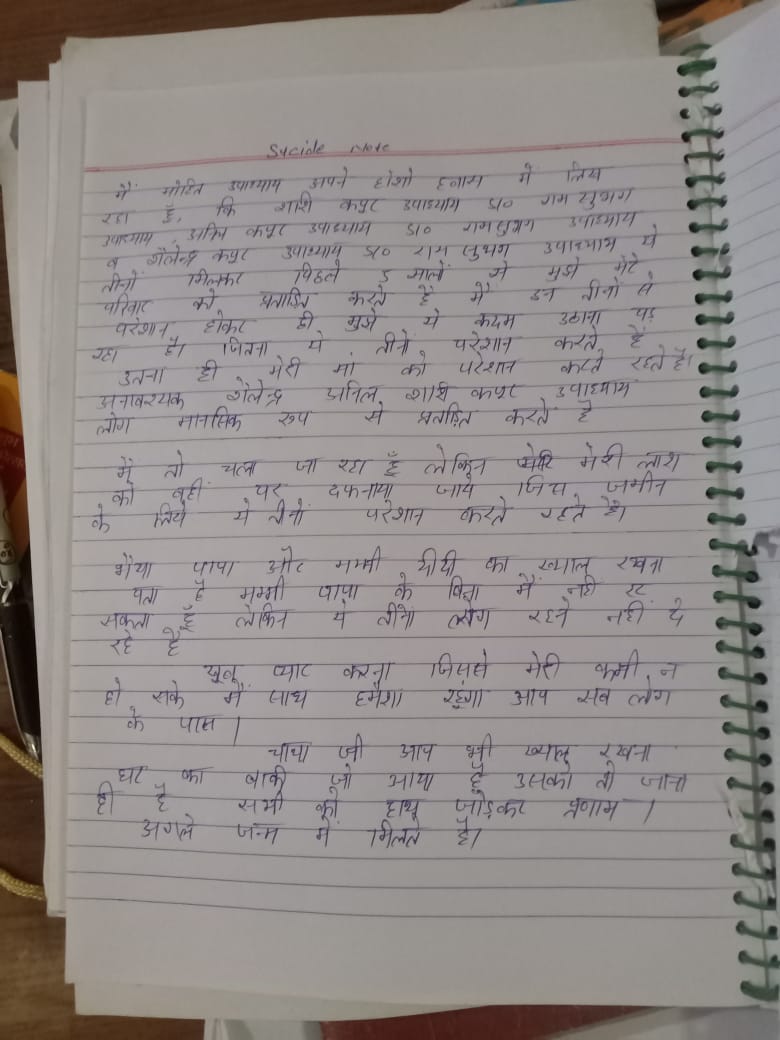 Sucide Note
मैं मोहित उपाध्याय अपने होशो हवास में लिख
रहा हूँ, कि शशि कपूर उपाध्याय S/O राम सुभग
उपाध्याय, अनिल कपूर उपाध्याय S/O राम सुभग उपाध्याय
व शैलेन्द्र कपूर उपाध्याय S/O राम सुभग उपाध्याय ये
तीनों मिलकर पिछले 5 सालों से मुझे मेरे
परिवार को प्रताड़ित करते हैं मैं इन तीनों से
परेशान होकर ही मुझे ये कदम उठाना पड़
रहा है। जितना ये तीनों परेशान करते हैं
उतना ही मेरी मां को परेशान करते रहते है।
अनावश्यक शैलेन्द्र अनिल शशि कपूर उपाध्याय
लोग मानसिक रूप से प्रताड़ित करते है
मैं तो चला जा रहा हूँ लेकिन मेरी लाश
को वहीं पर दफनाया जाये जिस जमीन
के लिये ये तीनों परेशान करते रहते है।
भैया पापा और मम्मी दीदी का ख्याल रखना
पता है मम्मी पापा के बिना मैं नही रह
सकता हूँ लेकिन ये तीनो लोग रहने नहीं दे
रहे है
खूब प्यार करना जिससे मेरी कमी न
हो सके मैं साथ हमेशा रहूंगा आप सब लोग
के पास।
चाचा जी आप भी ख्याल रखना
घर का बाकी जो आया है उसको तो जाना
ही है सभी को हाथ जोड़कर प्रणाम।
अगले जन्म में मिलते है।